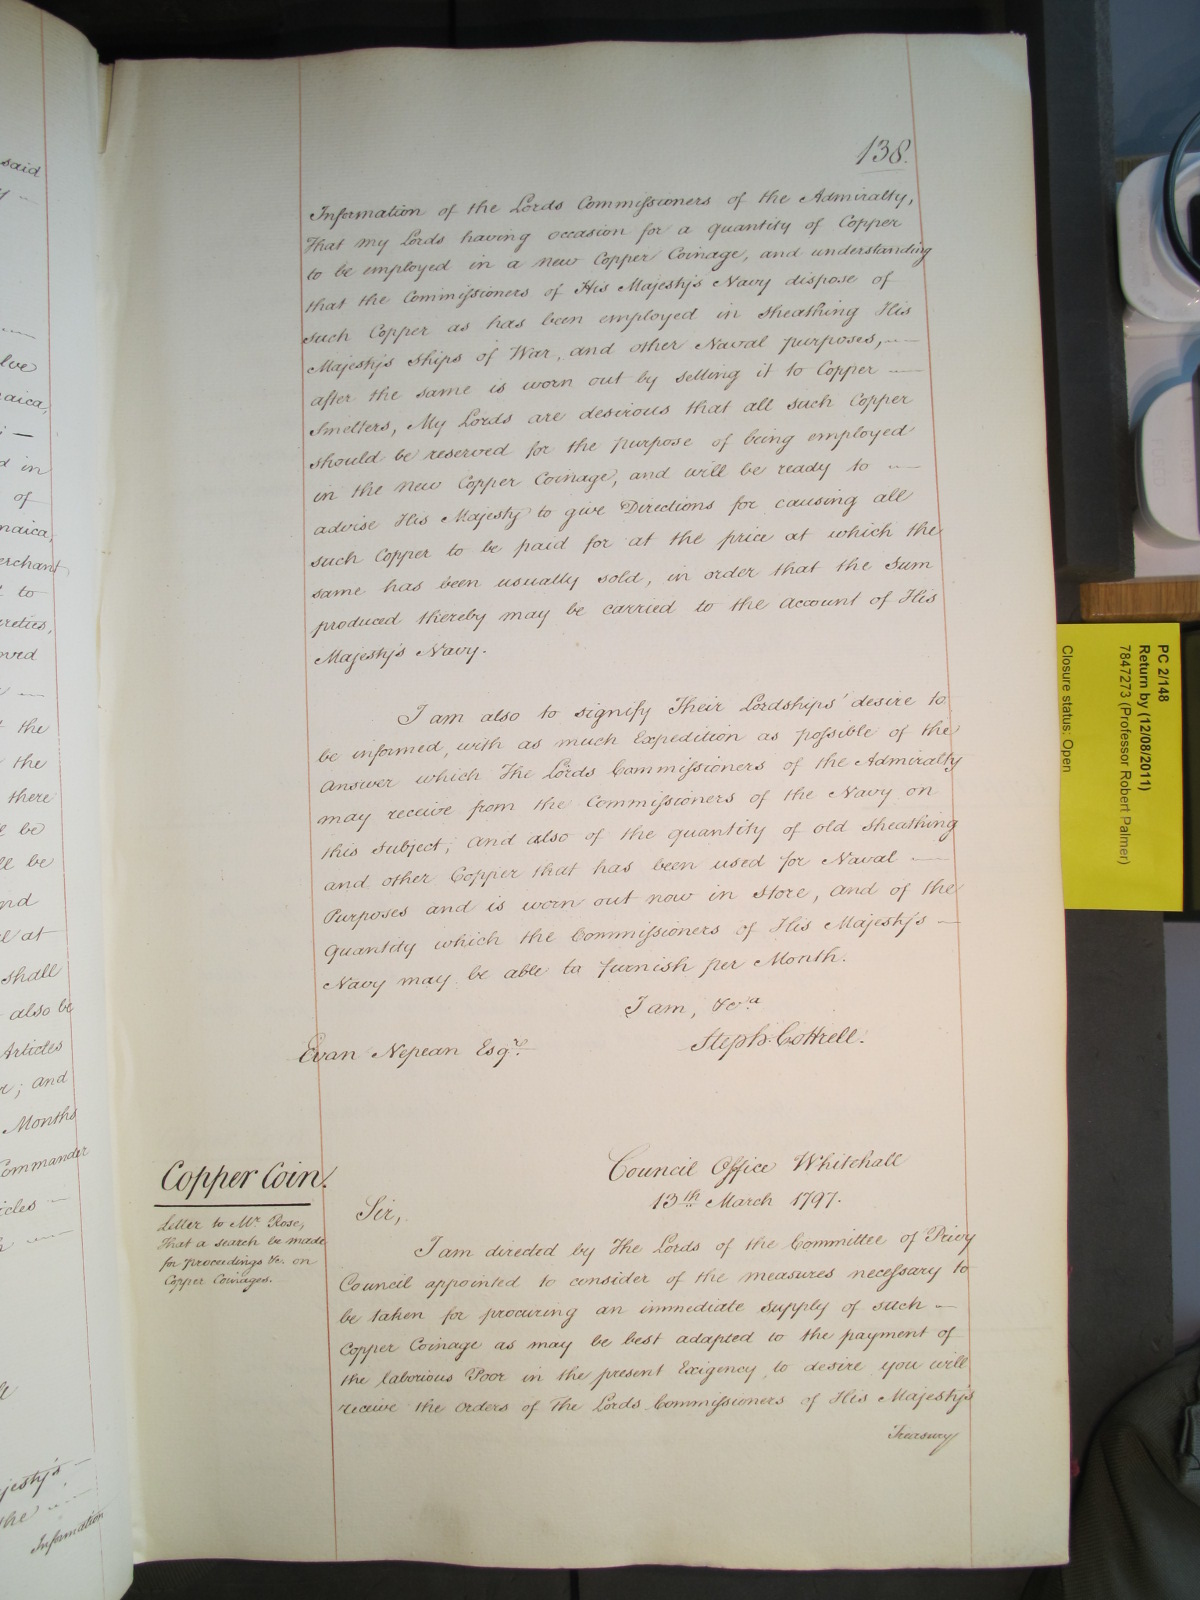 said
lve
aica,
d in
of
maica,
erchant
to
rieties,
oved
the
the
there
be
ll be
nd
at
shall
also be
Articles
; and
Months
Commander
icles
jesty's
the
Information
138.
Information of the Lords Commissioners of the Admiralty,
That my Lords having occasion for a quantity of Copper
to be employed in a new Copper Coinage, and understanding
that the Commissioners of His Majesty's Navy dispose of
such Copper as has been employed in sheathing His
Majesty's Ships of War, and other Naval purposes, —
after the same is worn out by selling it to Copper —
Smelters, My Lords are desirous that all such Copper
should be reserved for the purpose of being employed
in the new Copper Coinage, and will be ready to —
advise His Majesty to give Directions for causing all
such Copper to be paid for at the price at which the
same has been usually sold, in order that the Sum
produced thereby may be carried to the Account of His
Majesty's Navy.
I am also to signify Their Lordships' desire to
be informed, with as much Expedition as possible of the
Answer which The Lords Commissioners of the Admiralty
may receive from the Commissioners of the Navy on
this Subject; and also of the quantity of old Sheathing
and other Copper that has been used for Naval —
Purposes and is worn out now in Store, and of the
Quantity which the Commissioners of His Majesty's —
Navy may be able to furnish per Month.
I am, &c.a
Steph. Cottrell.
Evan Nepean Esqre.
Copper Coin.
Letter to Mr. Rose,
That a search be made
for proceedings &c. on
Copper Coinages.
Council Office Whitehall
13th March 1797.
Sir,
I am directed by The Lords of the Committee of Privy
Council appointed to consider of the measures necessary to
be taken for procuring an immediate Supply of such —
Copper Coinage as may be best adapted to the payment of
the laborious Poor in the present Exigency to desire you will
receive the Orders of The Lords Commissioners of His Majesty's
Treasury
PC 2/148
Return by (12/08/2011)
7847273 (Professor Robert Palmer)
Closure status: Open